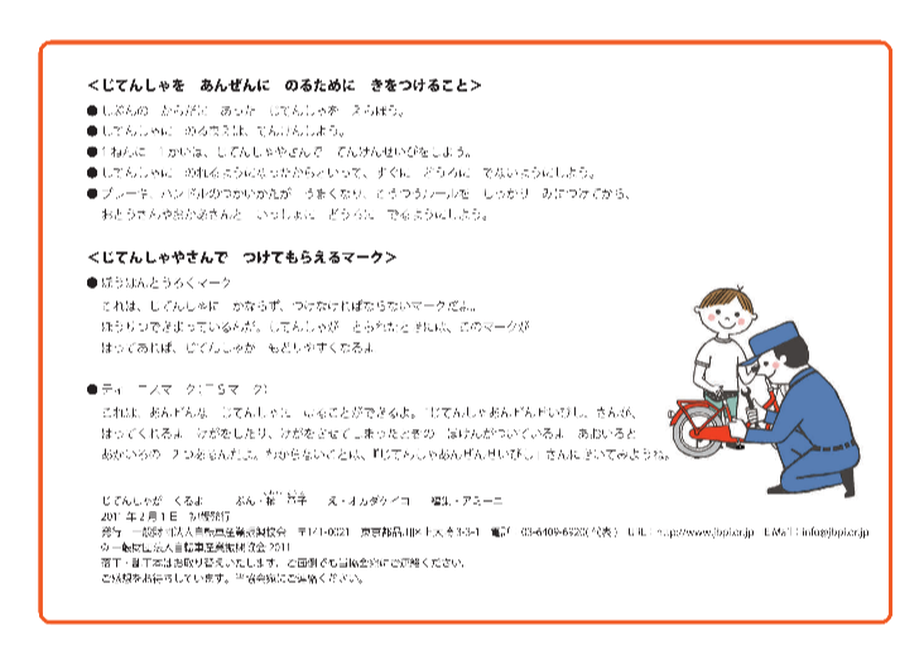 <じてんしゃを　あんぜんに　のるために　きをつけること>
●じぶんの　からだに　あった　じてんしゃを　えらぼう。
●じてんしゃに　のるまえは、てんけんしよう。
●1ねんに　1かいは、じてんしゃやさんで　てんけんせいびをしよう。
●じてんしゃに　のれるようになったからといって、すぐに　どうろに　でないようにしよう。
●ブレーキ、ハンドルのつかいかたが　うまくなり、こうつうルールを　しっかり　みにつけてから、
おとうさんやおかあさんと　いっしょに　どうろに　でるようにしよう。
<じてんしゃやさんで　つけてもらえるマーク>
●ぼうはんとうろくマーク
これは、じてんしゃに　かならず、つけなければならないマークだよ。
ほうりつできまっているんだ。じてんしゃが　とられたときには、このマークが
はってあれば、じてんしゃが　もどりやすくなるよ
●ティーエスマーク(TSマーク)
これは、あんぜんな　じてんしゃに　はることができるよ。「じてんしゃあんぜんせいびし」さんが、
はってくれるよ　けがをしたり、けがをさせてしまったときの　ほけんがついているよ　あおいろと
あかいろの　2つあるんだよ。わからないことは、「じてんしゃあんぜんせいびし」さんにきいてみようね。
じてんしゃが　くるよ　ぶん・　え・オカダケイコ　編集・アミーニ
2011年2月1日　初版発行
発行　一般財団法人自転車産業振興協会　〒141-0021　東京都品川区上大崎3-3-1　電話　03-6409-6920(代表)　URL：http://www.jbpi.or.jp　E-Mail：info@jbpi.or.jp
©一般財団法人自転車産業振興協会 2011
落丁・乱丁本はお取り替えいたします。ご面倒でも当協会宛にご連絡ください。
ご感想をお待ちしています。当協会宛にご連絡ください。